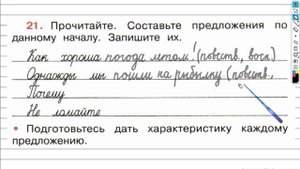 21. Прочитайте. Составьте предложения по
данному началу. Запишите их.
Как хороша погода летом! (повеств, воскл)
Однажды мы пошли на рыбалку (повеств,
Почему
Не ломайте
• Подготовьтесь дать характеристику каждому
предложению.